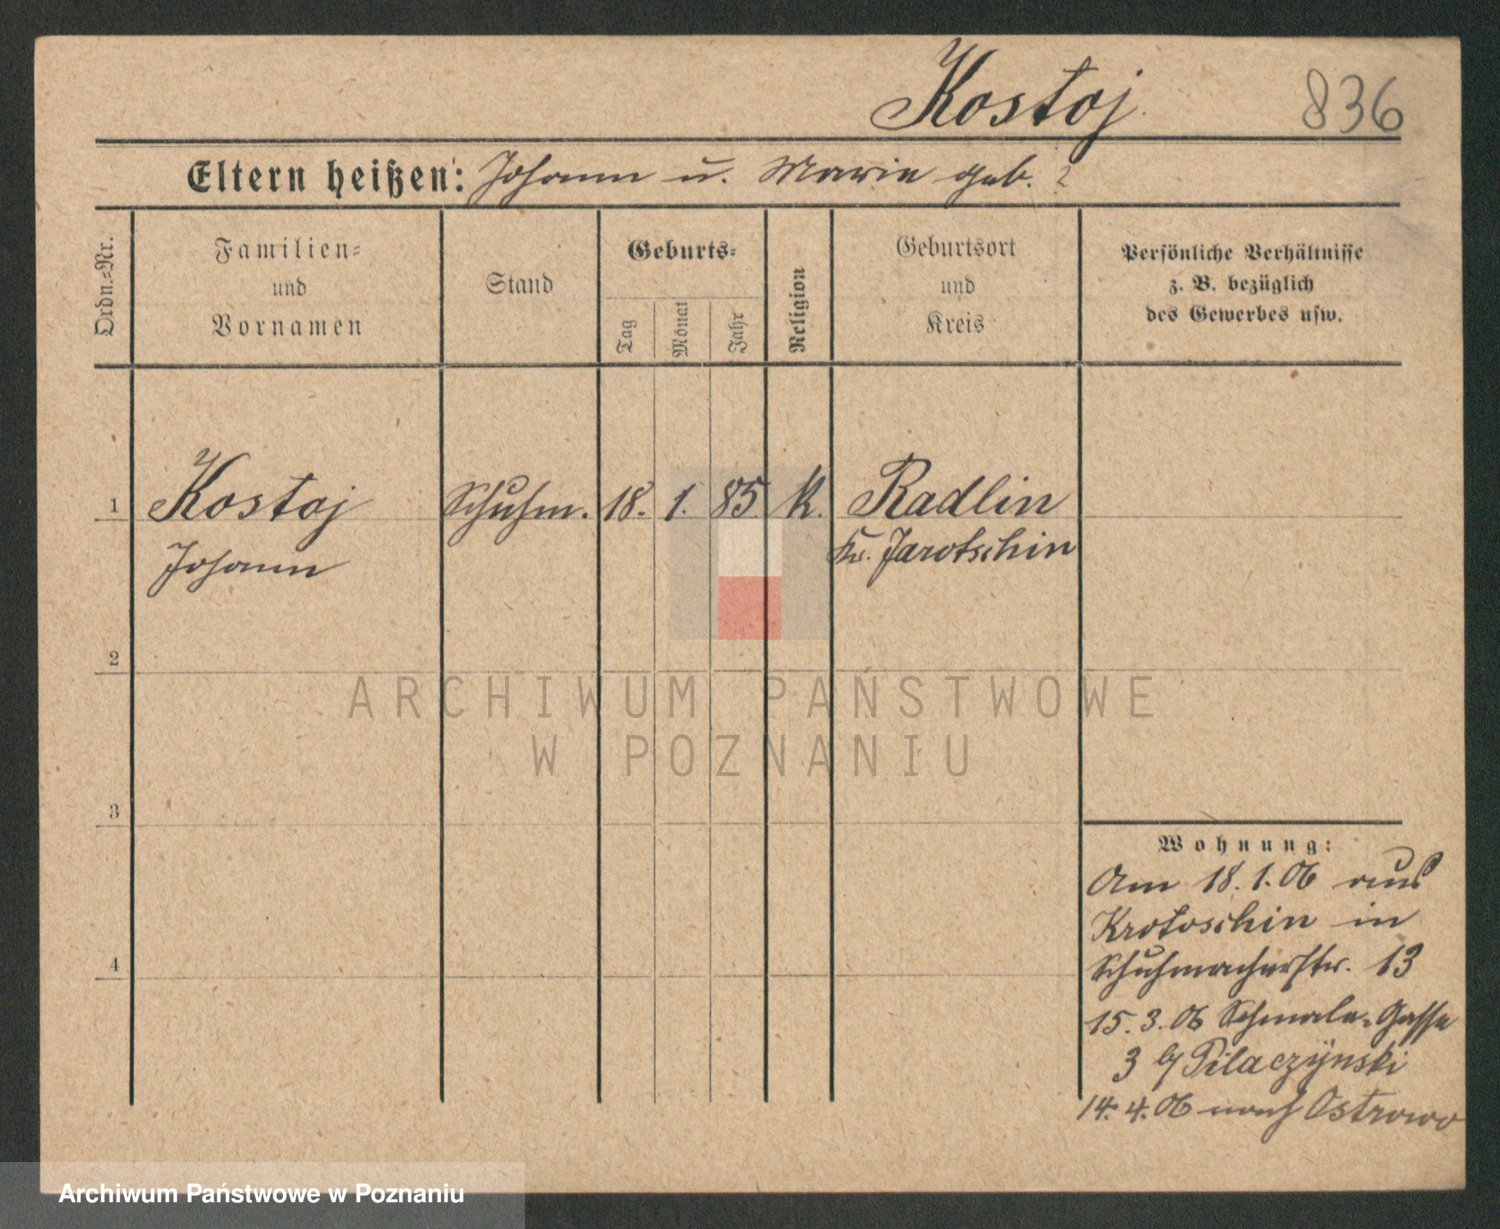 Kostoj 836
Eltern heißen: Johann u. Marie geb. ?
Ordn.=Nr.
Familien=
und
Vornamen
Stand
Geburts=
Tag
Monat
Jahr
Religion
Geburtsort
und
Kreis
Persönliche Verhältnisse
z. B. bezüglich
des Gewerbes usw.
1 Kostoj Schuhm. 18. 1. 85. k. Radlin
Johann Kr. Jarotschin
2
ARCHIWUM PAŃSTWOWE
W POZNANIU
3
Wohnung:
Am 18.1.06 aus
Krotoschin in
Schuhmacherstr. 13
15.3.06 Schmale=Gasse
3 b/ Pilaczÿnski
4
14.4.06 nach Ostrowo
Archiwum Państwowe w Poznaniu